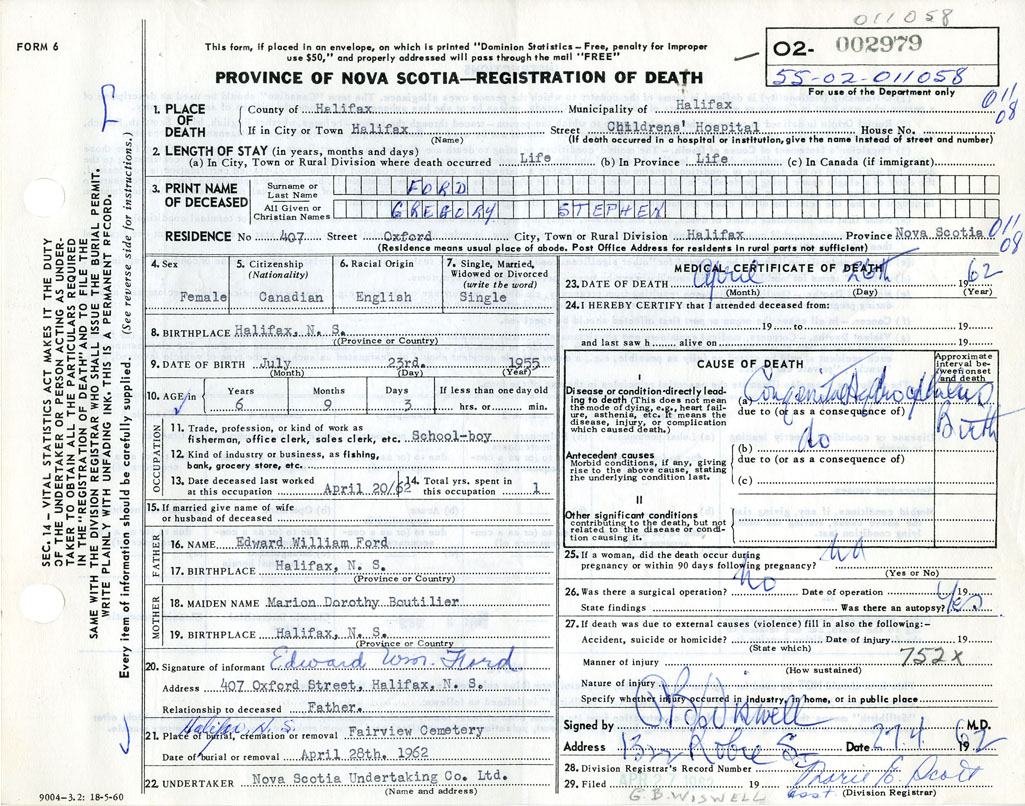 011058
FORM 6
This form, if placed in an envelope, on which is printed "Dominion Statistics – Free, penalty for improper
use $50," and properly addressed will pass through the mail "FREE"
PROVINCE OF NOVA SCOTIA—REGISTRATION OF DEATH
02- 002979
55-02-011058
For use of the Department only
011
08
1. PLACE OF DEATH
County of Halifax Municipality of Halifax
If in City or Town Halifax Street Childrens' Hospital House No.
(Name) (If death occurred in a hospital or institution, give the name instead of street and number)
2. LENGTH OF STAY (in years, months and days)
(a) In City, Town or Rural Division where death occurred Life (b) In Province Life (c) In Canada (if immigrant)
3. PRINT NAME OF DECEASED
Surname or Last Name FORD
All Given or Christian Names GREGORY STEPHEN
RESIDENCE No 407 Street Oxford City, Town or Rural Division Halifax Province Nova Scotia
011
08
(Residence means usual place of abode. Post Office Address for residents in rural parts not sufficient)
4. Sex
Female
5. Citizenship (Nationality)
Canadian
6. Racial Origin
English
7. Single, Married, Widowed or Divorced (write the word)
Single
8. BIRTHPLACE Halifax, N. S.
((Province or Country)
9. DATE OF BIRTH July 23rd. 1955
(Month) (Day) (Year)
10. AGE in Years Months Days If less than one day old
6 9 3 hrs. or min.
OCCUPATION
11. Trade, profession, or kind of work as
fisherman, office clerk, sales clerk, etc. School-boy
12. Kind of industry or business, as fishing,
bank, grocery store, etc.
13. Date deceased last worked
at this occupation April 20/62
14. Total yrs. spent in
this occupation 1
15. If married give name of wife
or husband of deceased
FATHER
16. NAME Edward William Ford
17. BIRTHPLACE Halifax, N. S.
(Province or Country)
MOTHER
18. MAIDEN NAME Marion Dorothy Boutilier
19. BIRTHPLACE Halifax, N. S.
(Province or Country
20. Signature of informant Edward Wm. Ford
Address 407 Oxford Street, Halifax, N. S.
Relationship to deceased Father.
Halifax, N.S.
21. Place of burial, cremation or removal Fairview Cemetery
Date of burial or removal April 28th. 1962
22. UNDERTAKER Nova Scotia Undertaking Co. Ltd.
(Name and address)
9004–3.2: 18-5-60
MEDICAL CERTIFICATE OF DEATH
23. DATE OF DEATH April 26th 1962
(Month) (Day) (Year)
24. I HEREBY CERTIFY that I attended deceased from:
19 to 19
and last saw h alive on 19
CAUSE OF DEATH
Approximate interval between onset and death
I
Disease or condition directly leading to death (This does not mean the mode of dying, e.g., heart failure, asthenia, etc. It means the disease, injury, or complication which caused death.)
(a) Congenital Hydrocephalus Birth
due to (or as a consequence of)
do
Antecedent causes
Morbid conditions, if any, giving rise to the above cause, stating the underlying condition last.
(b)
due to (or as a consequence of)
(c)
II
Other significant conditions
contributing to the death, but not related to the disease or condition causing it.
25. If a woman, did the death occur during
pregnancy or within 90 days following pregnancy? no
(Yes or No)
26. Was there a surgical operation? no Date of operation 19
State findings Was there an autopsy? Yes
27. If death was due to external causes (violence) fill in also the following:–
Accident, suicide or homicide? Date of injury 19
(State which)
Manner of injury 752x
(How sustained)
Nature of injury
Specify whether injury occurred in industry, in home, or in public place
Signed by G B Wiswell M.D.
Address Robie St. Date 27.4 1962
28. Division Registrar's Record Number
29. Filed APR 27 1962 19 Marie E. Scott
G.B. WISWELL asst. (Division Registrar)
SEC. 14 – VITAL STATISTICS ACT MAKES IT THE DUTY
OF THE UNDERTAKER OR PERSON ACTING AS UNDER-
TAKER TO OBTAIN ALL THE PARTICULARS REQUIRED
IN THE "REGISTRATION OF DEATH" AND TO FILE THE
SAME WITH THE DIVISION REGISTRAR WHO SHALL ISSUE THE BURIAL PERMIT.
WRITE PLAINLY WITH UNFADING INK. THIS IS A PERMANENT RECORD.
Every item of information should be carefully supplied. (See reverse side for instructions.)